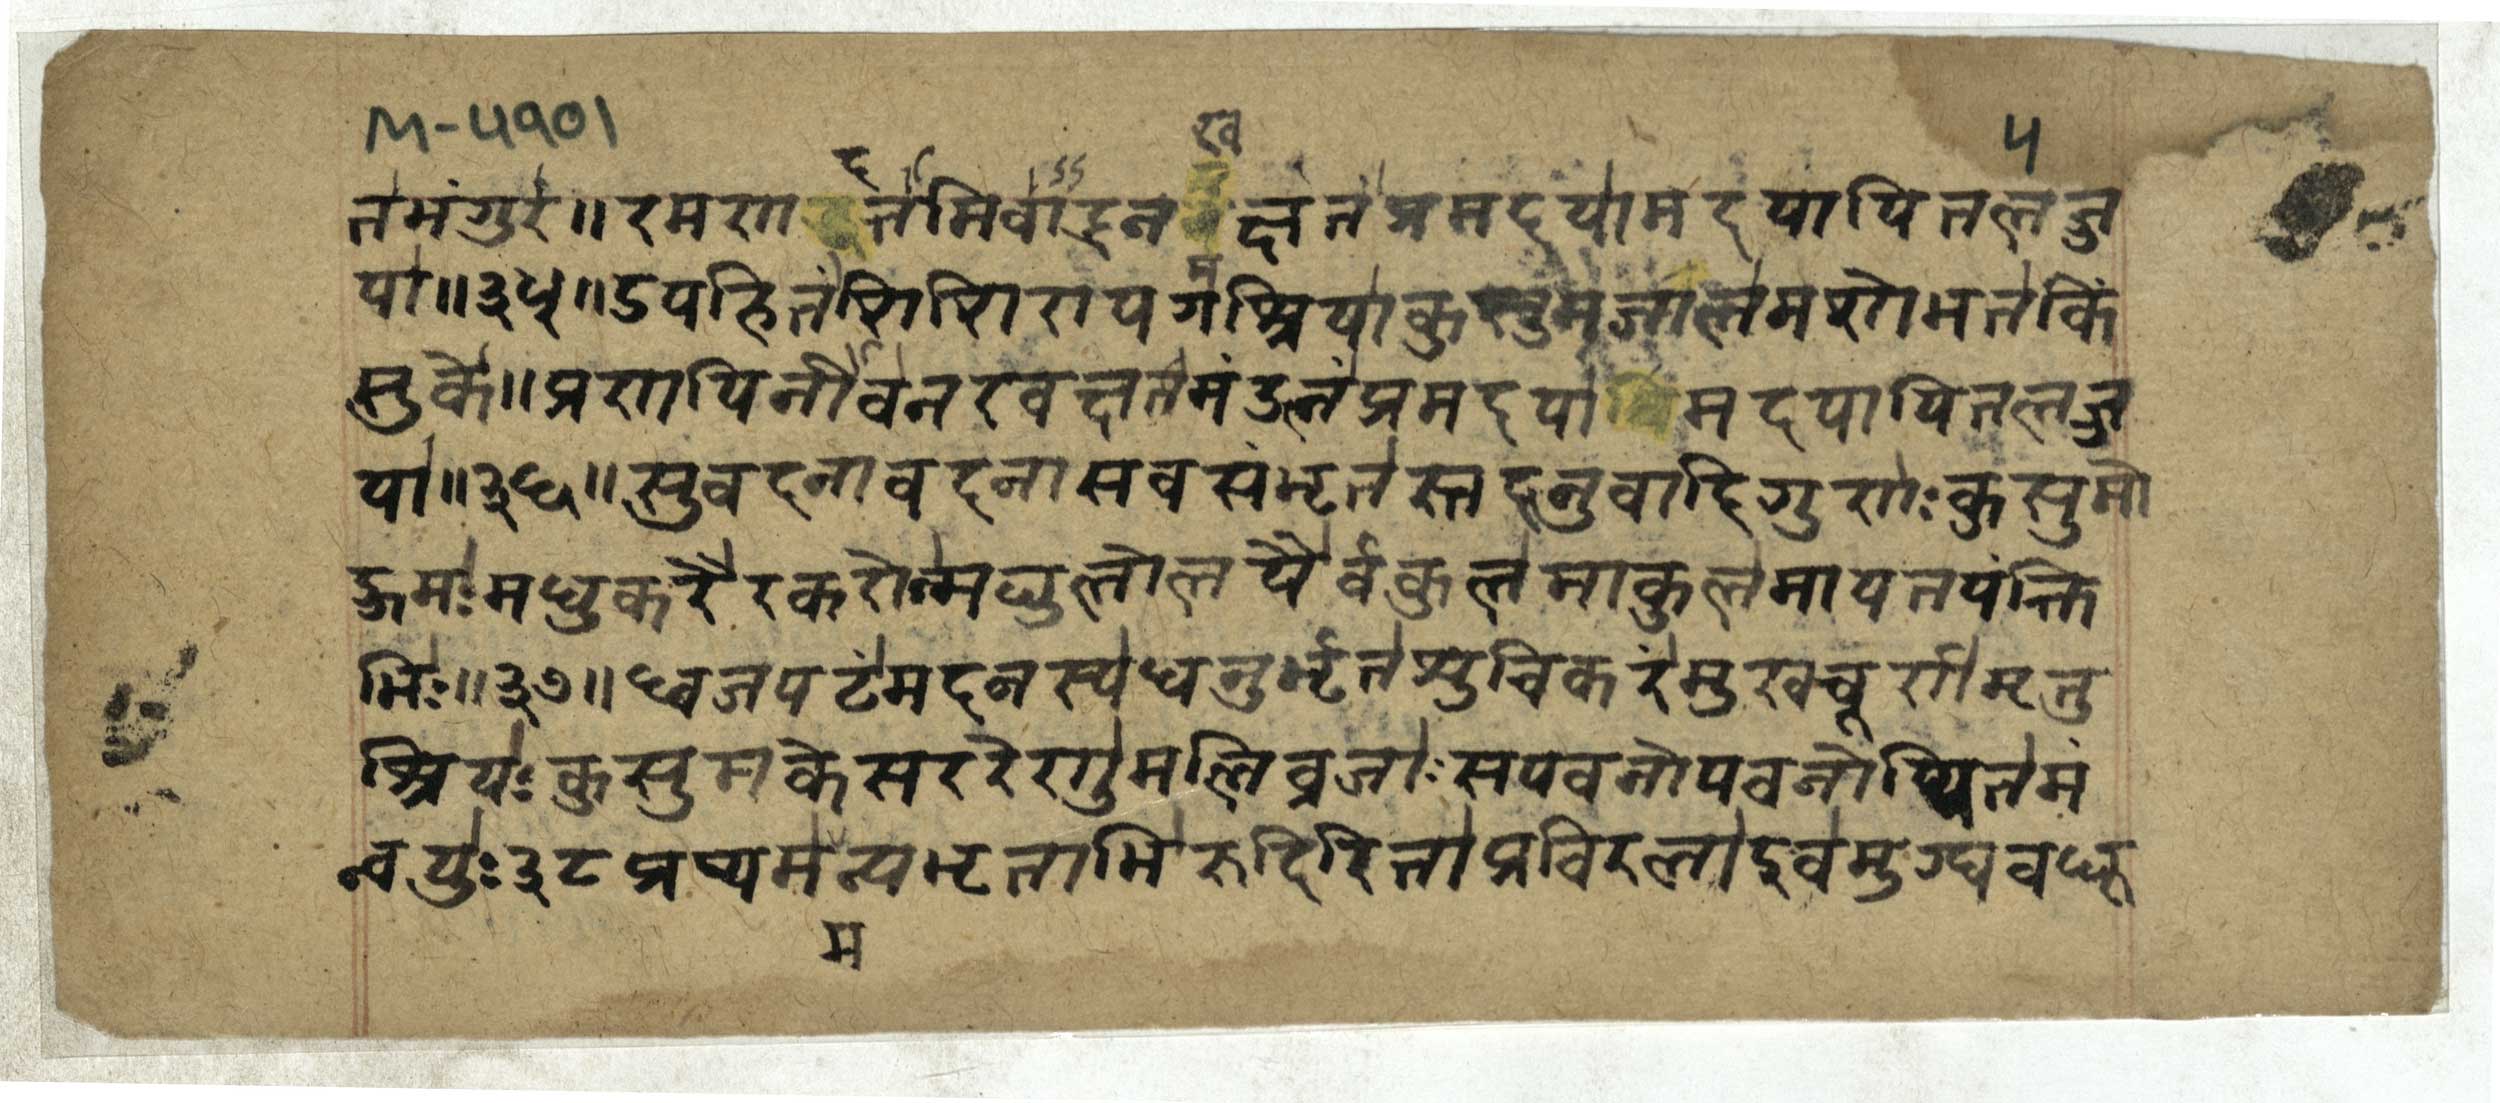 M-५१०१
५
तमंगुरं॥रमणदत्तमिवार्द्रनखक्षतंप्रमदयामदयापितलज्ज
या॥३५॥ऽपहितंशिशिरापगमश्रियाकुसुमजालमशोभतकिं
सुके॥प्रणयिनीवनखक्षतमंडनंप्रमदयामदयापितलज्ज
या॥३६॥सुवदनावदनासवसंभृतस्तदनुवादिगुणःकुसुमो
द्गमःमधुकरैरकरोन्मधुलोलयैर्वकुलमाकुलमायतपंक्ति
भिः॥३७॥ध्वजपटंमदनस्यधनुर्भृतश्युचिकरंमुखचूर्णमृतु
श्रियःकुसुमकेसररेरगुमलिव्रजाःसपवनोपवनो तमं
न्वयुः३८प्रप्यमन्यभृताभिरुदिरिताप्रविरलाइवमुग्धवधू
म